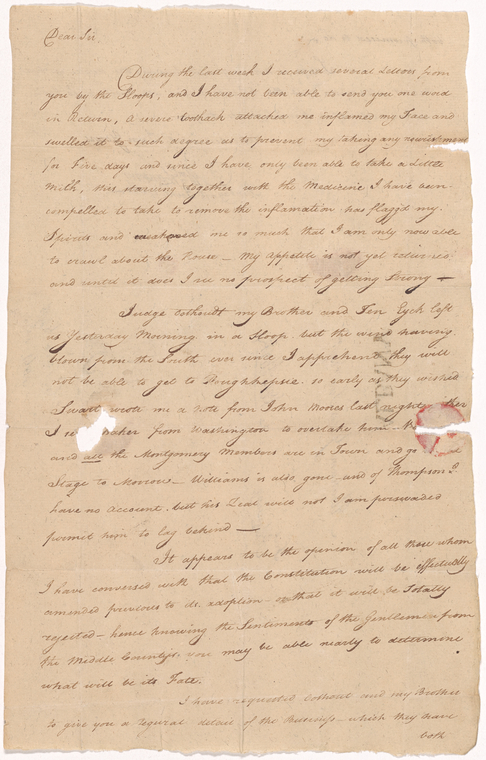 Dear Sir
During the last week I received several Letters from
you by the Sloops, and I have not been able to send you one word
in Return, A severe Toothach attached me inflamed my Face and
swelled it to such degree as to prevent my taking any nourishment
for Five days and since I have only been able to take a Little
Milk, this starving together with the Medicine I have been
compelled to take to remove the inflamation has flagg'd my
Spirits and me so much that I am only now able
to crawl about the House — My Appetite is not yet
and untill it does I see no prospect of getting Strong —
Judge Tothoudt my Brother and Ten Eyck left
us Yesterday Morning in a Sloop but the wind having
blown from the South ever since I apprehend they will
not be able to get to Poughkepsie so early as they wished
Swart wrote me a note from John last
I from Washington to overtake him
and all the Montgomery Members are in Town and go
Stage to Morrow — Williams is also gone and of Thompson I
have no account. but his Zeal will not I am perswaded
permit him to lag behind —
It appears to be the opinion of all those whom
I have conversed with that the Constitution will be effectually
amended previous to its adoption — or that it will be Totally
rejected — hence knowing the Sentiments of the Gentlemen from
the Middle Countys you may be able nearly to determine
what will be its Fate.
I have requested Tothout and my Brother
to give you a regural detail of the — which they have
both